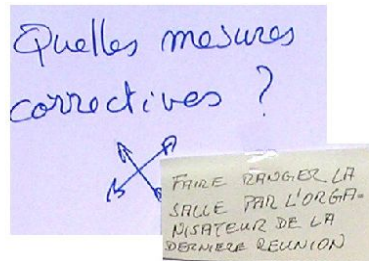 Quelles mesures
correctives ?
FAIRE RANGER LA
SALLE PAR L'ORGA-
NISATEUR DE LA
DERNIERE REUNION